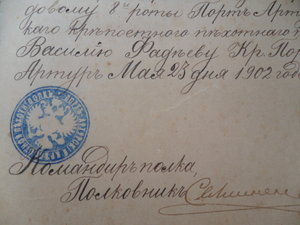 довому 8й роты Портъ Арт
каго Крѣпостнаго пѣхотнаго
Василію Фадѣеву Кр. По
Артуръ Мая 23 дня 1902 го
Командиръ полка,
Полковникъ